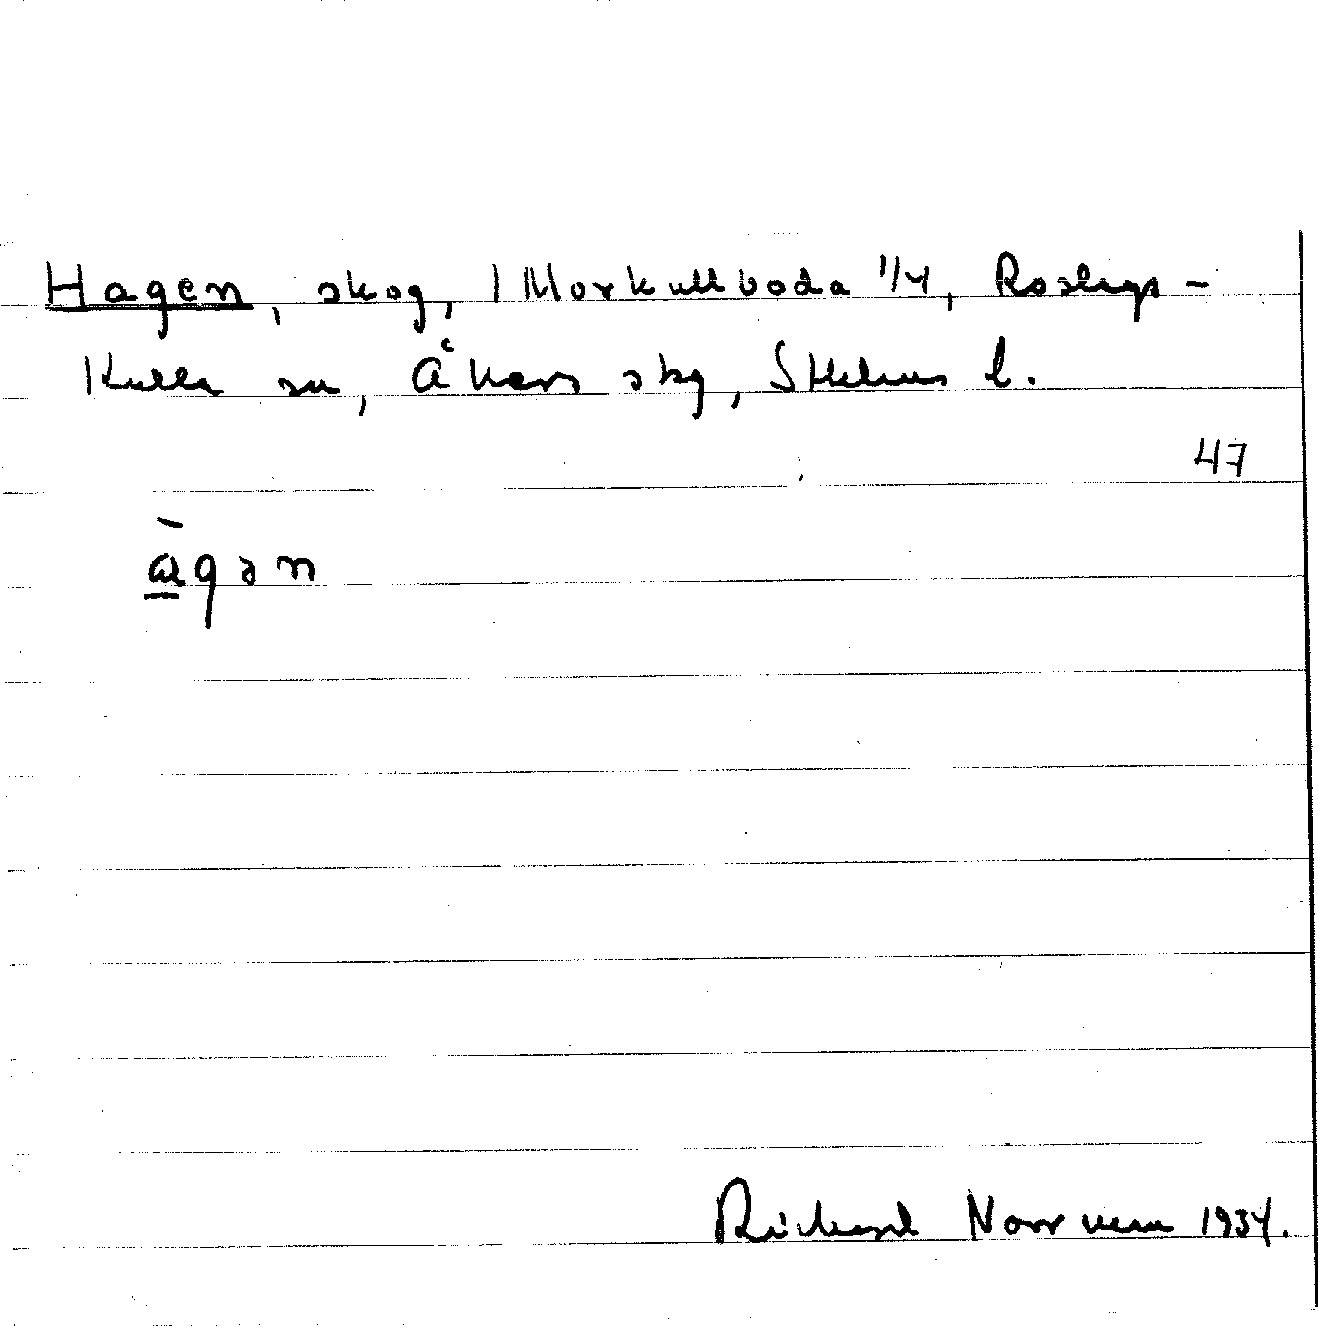 Hagen, skog, Morkullboda 1/4, Roslags-
Kulla sn, Åkers skg, Sthlms l.
47
àgən
Rickard Norrveus 1934.